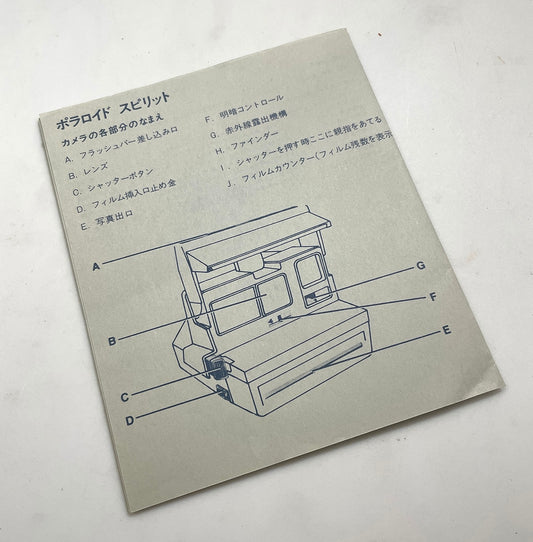 ポラロイド スピリット
カメラの各部分のなまえ
A. フラッシュバー差し込み口
B. レンズ
C. シャッターボタン
D. フィルム挿入口止め金
E. 写真出口
F. 明暗コントロール
G. 赤外線露出機構
H. ファインダー
I. シャッターを押す時ここに親指をあてる
J. フィルムカウンター(フィルム残数を表示
A
G
F
B
E
C
D